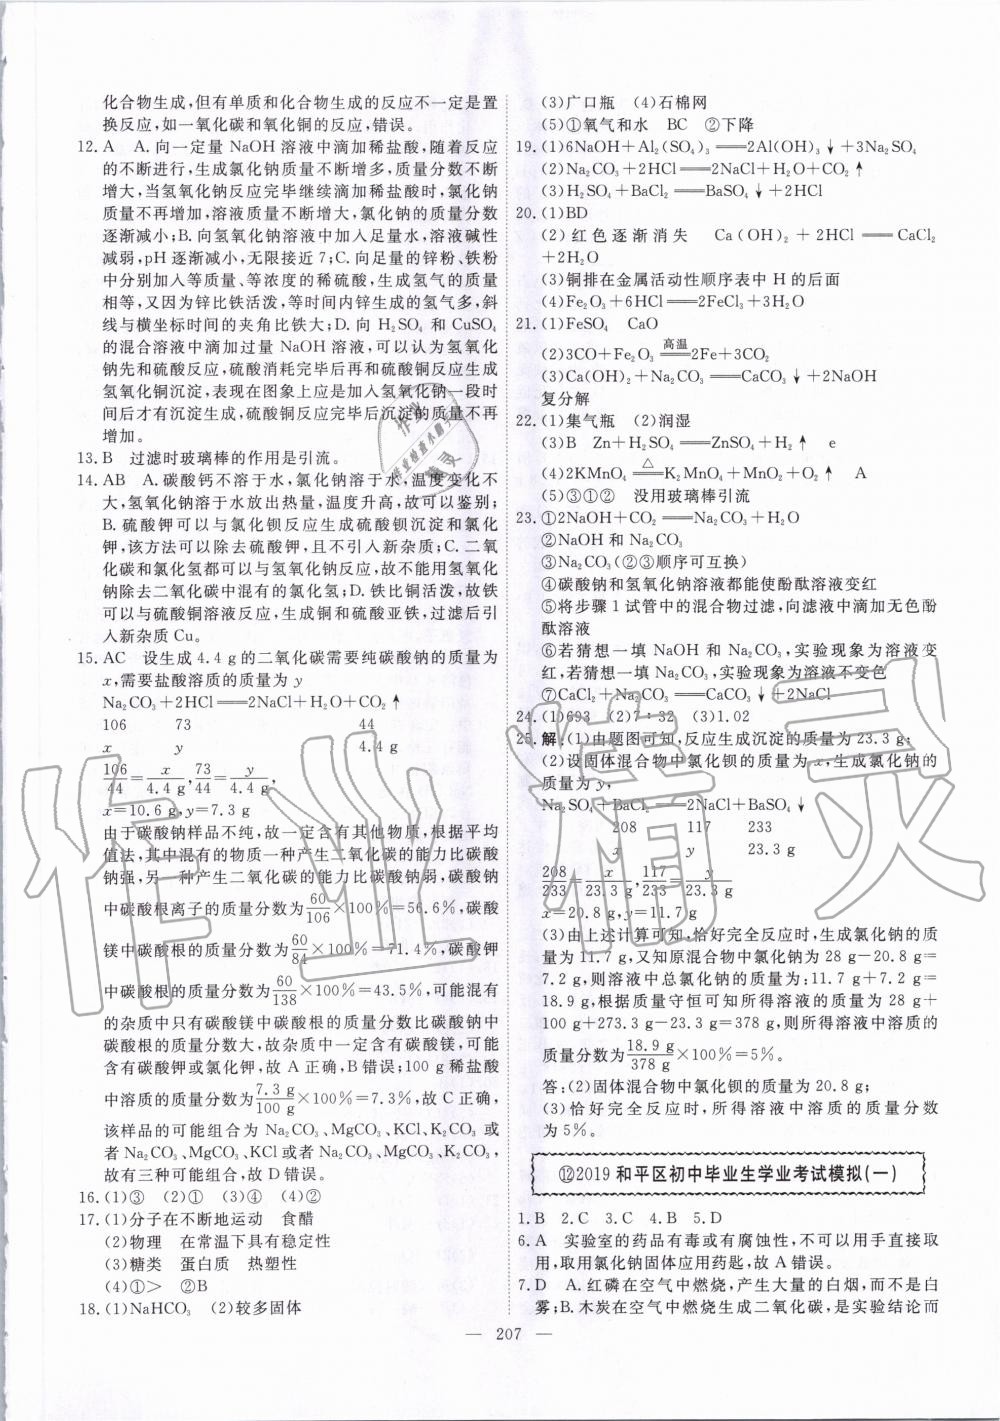 化合物生成,但有单质和化合物生成的反应不一定是置
换反应,如一氧化碳和氧化铜的反应,错误。
12. A A. 向一定量 NaOH 溶液中滴加稀盐酸,随着反应
的不断进行,生成氯化钠质量不断增多,质量分数不断
增大,当氢氧化钠反应完毕继续滴加稀盐酸时,氯化钠
质量不再增加,溶液质量不断增大,氯化钠的质量分数
逐渐减小;B. 向氢氧化钠溶液中加入足量水,溶液碱性
减弱,pH 逐渐减小,无限接近 7;C. 向足量的锌粉、铁粉
中分别加入等质量、等浓度的稀硫酸,生成氢气的质量
相等,又因为锌比铁活泼,等时间内锌生成的氢气多,斜
线与横坐标时间的夹角比铁大;D. 向 H₂SO₄ 和 CuSO₄
的混合溶液中滴加过量 NaOH 溶液,可以认为氢氧化
钠先和硫酸反应,硫酸消耗完毕后再和硫酸铜反应生成
氢氧化铜沉淀,表现在图象上应是加入氢氧化钠一段时
间后才有沉淀生成,硫酸铜反应完毕后沉淀的质量不再
增加。
13. B 过滤时玻璃棒的作用是引流。
14. AB A. 碳酸钙不溶于水,氯化钠溶于水,温度变化不
大,氢氧化钠溶于水放出热量,温度升高,故可以鉴别;
B. 硫酸钾可以与氯化钡反应生成硫酸钡沉淀和氯化
钾,该方法可以除去硫酸钾,且不引入新杂质;C. 二氧
化碳和氯化氢都可以与氢氧化钠反应,故不能用氢氧化
钠除去二氧化碳中混有的氯化氢;D. 铁比铜活泼,故铁
可以与硫酸铜溶液反应,生成铜和硫酸亚铁,过滤后引
入新杂质 Cu。
15. AC 设生成 4.4 g 的二氧化碳需要纯碳酸钠的质量为
x,需要盐酸溶质的质量为 y
Na₂CO₃+2HCl══2NaCl+H₂O+CO₂↑
106 73 44
x y 4.4 g
106/44=x/4.4 g,73/44=y/4.4 g,
x=10.6 g,y=7.3 g
由于碳酸钠样品不纯,故一定含有其他物质,根据平均
值法,其中混有的物质一种产生二氧化碳的能力比碳酸
钠强,另一种产生二氧化碳的能力比碳酸钠弱,碳酸钠
中碳酸根离子的质量分数为60/106×100%=56.6%,碳酸
镁中碳酸根的质量分数为60/84×100%=71.4%,碳酸钾
中碳酸根的质量分数为60/138×100%=43.5%,可能混有
的杂质中只有碳酸镁中碳酸根的质量分数比碳酸钠中
碳酸根的质量分数大,故杂质中一定含有碳酸镁,可能
含有碳酸钾或氯化钾,故 A 正确,B 错误;100 g 稀盐酸
中溶质的质量分数为7.3 g/100 g×100%=7.3%,故 C 正确,
该样品的可能组合为 Na₂CO₃、MgCO₃、KCl、K₂CO₃ 或
者 Na₂CO₃、MgCO₃、KCl 或者 Na₂CO₃、MgCO₃、K₂CO₃,
故有三种可能组合,故 D 错误。
16. (1)③ (2)① (3)④ (4)②
17. (1)分子在不断地运动 食醋
(2)物理 在常温下具有稳定性
(3)糖类 蛋白质 热塑性
(4)①> ②B
18. (1)NaHCO₃ (2)较多固体
(3)广口瓶 (4)石棉网
(5)①氧气和水 BC ②下降
19. (1)6NaOH+Al₂(SO₄)₃══2Al(OH)₃↓+3Na₂SO₄
(2)Na₂CO₃+2HCl══2NaCl+H₂O+CO₂↑
(3)H₂SO₄+BaCl₂══BaSO₄↓+2HCl
20. (1)BD
(2)红色逐渐消失 Ca(OH)₂+2HCl══CaCl₂
+2H₂O
(3)铜排在金属活动性顺序表中 H 的后面
(4)Fe₂O₃+6HCl══2FeCl₃+3H₂O
21. (1)FeSO₄ CaO
(2)3CO+Fe₂O₃ 高温══2Fe+3CO₂
(3)Ca(OH)₂+Na₂CO₃══CaCO₃↓+2NaOH
复分解
22. (1)集气瓶 (2)润湿
(3)B Zn+H₂SO₄══ZnSO₄+H₂↑ e
(4)2KMnO₄ △══K₂MnO₄+MnO₂+O₂↑ A
(5)③①② 没用玻璃棒引流
23. ①2NaOH+CO₂══Na₂CO₃+H₂O
②NaOH 和 Na₂CO₃
③Na₂CO₃(②③顺序可互换)
④碳酸钠和氢氧化钠溶液都能使酚酞溶液变红
⑤将步骤 1 试管中的混合物过滤,向滤液中滴加无色酚
酞溶液
⑥若猜想一填 NaOH 和 Na₂CO₃,实验现象为溶液变
红,若猜想一填 Na₂CO₃,实验现象为溶液不变色
⑦CaCl₂+Na₂CO₃══CaCO₃↓+2NaCl
24. (1)693 (2)7∶32 (3)1.02
25. 解:(1)由题图可知,反应生成沉淀的质量为 23.3 g;
(2)设固体混合物中氯化钡的质量为 x,生成氯化钠的
质量为 y,
Na₂SO₄+BaCl₂══2NaCl+BaSO₄↓
208 117 233
x y 23.3 g
208/233=x/23.3 g,117/233=y/23.3 g
x=20.8 g,y=11.7 g
(3)由上述计算可知,恰好完全反应时,生成氯化钠的质
量为 11.7 g,又知原混合物中氯化钠为 28 g-20.8 g=
7.2 g,则溶液中总氯化钠的质量为:11.7 g+7.2 g=
18.9 g,根据质量守恒可知所得溶液的质量为 28 g+
100 g+273.3 g-23.3 g=378 g,则所得溶液中溶质的
质量分数为18.9 g/378 g×100%=5%。
答:(2)固体混合物中氯化钡的质量为 20.8 g;
(3)恰好完全反应时,所得溶液中溶质的质量分数
为 5%。
⑫2019 和平区初中毕业生学业考试模拟(一)
1. B 2. C 3. C 4. B 5. D
6. A 实验室的药品有毒或有腐蚀性,不可以用手直接取
用,取用氯化钠固体应用药匙,故 A 错误。
7. D A. 红磷在空气中燃烧,产生大量的白烟,而不是白
雾;B. 木炭在空气中燃烧生成二氧化碳,是实验结论而
— 207 —
作业精灵